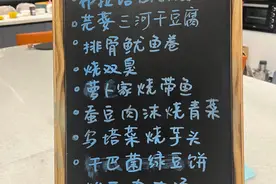 ·芫荽三河干豆腐
·排骨鱿鱼卷
·烧双臭
·萝卜家烧带鱼
·蚕豆肉沫烧青菜
·乌塔菜烧芋头
·干巴菌绿豆饼